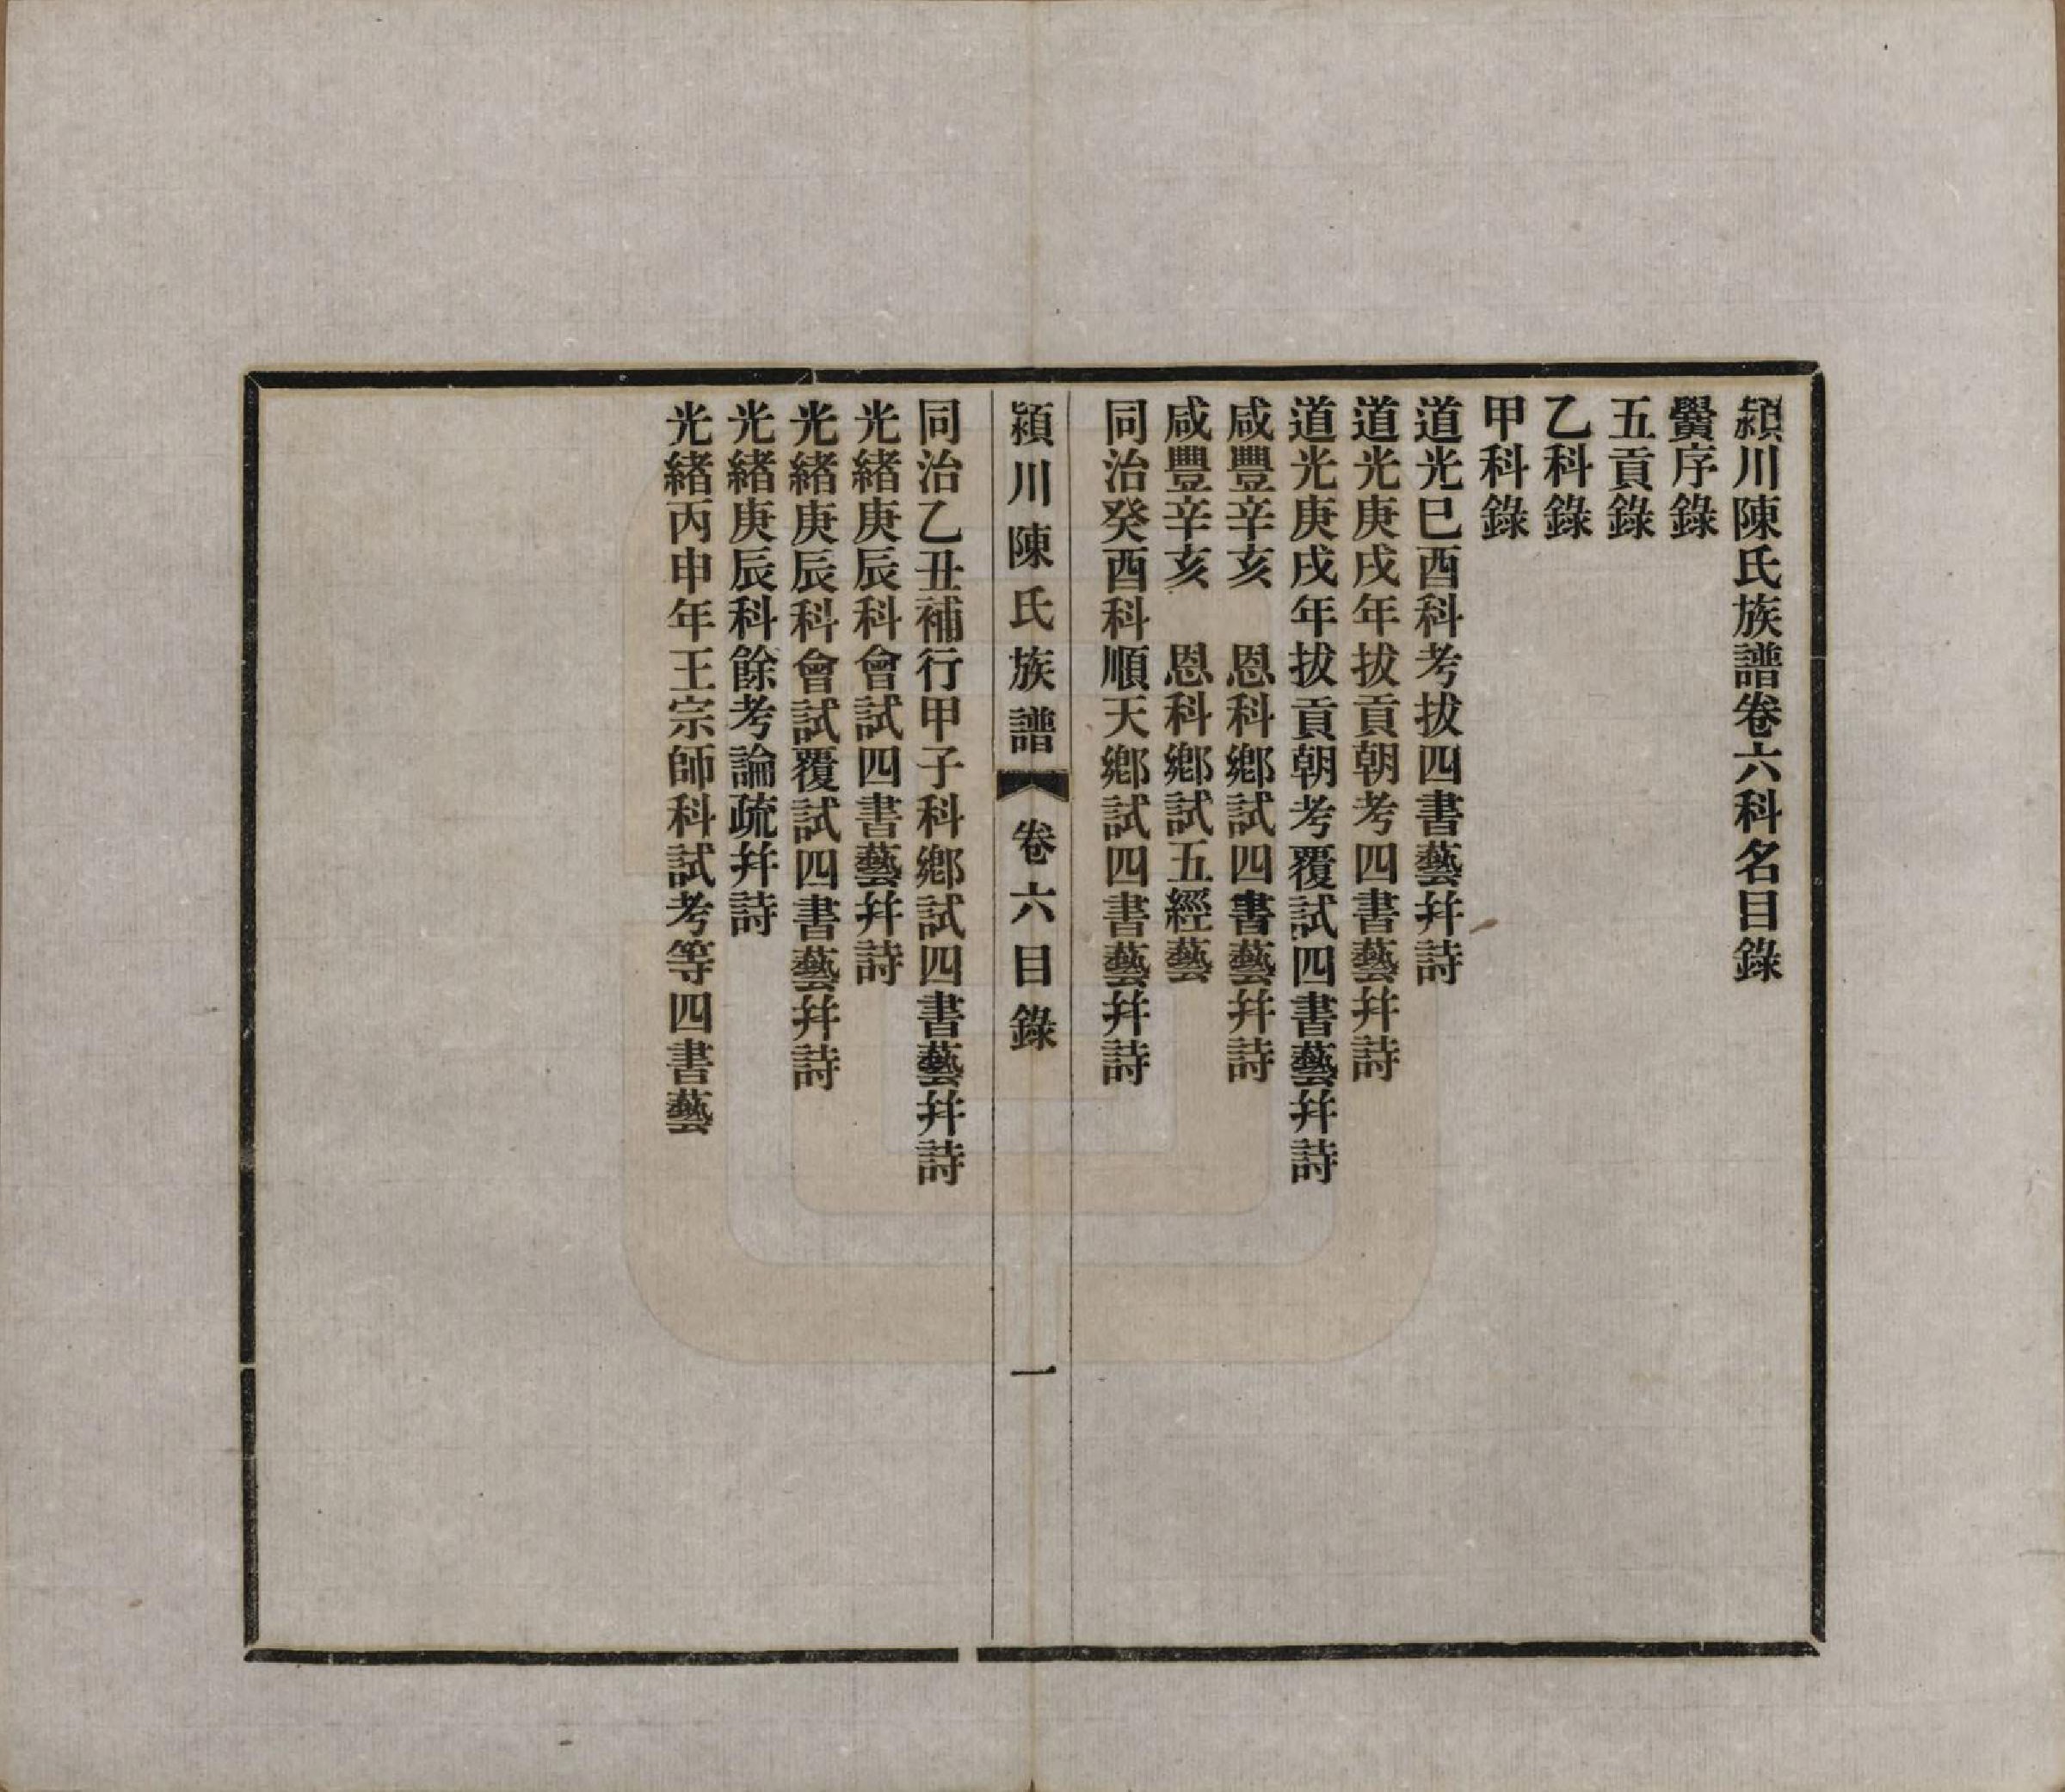 潁川陳氏族譜卷六科名目錄
黌序錄
五貢錄
乙科錄
甲科錄
道光己酉科考拔四書藝幷詩
道光庚戌年拔貢朝考四書藝幷詩
道光庚戌年拔貢朝考覆試四書藝幷詩
咸豐辛亥　恩科鄉試四書藝幷詩
咸豐辛亥　恩科鄉試五經藝
同治癸酉科順天鄉試四書藝幷詩
潁川陳氏族譜　卷六目錄　一
同治乙丑補行甲子科鄉試四書藝幷詩
光緒庚辰科會試四書藝幷詩
光緒庚辰科會試覆試四書藝幷詩
光緒庚辰科餘考論疏幷詩
光緒丙申年王宗師科試考等四書藝